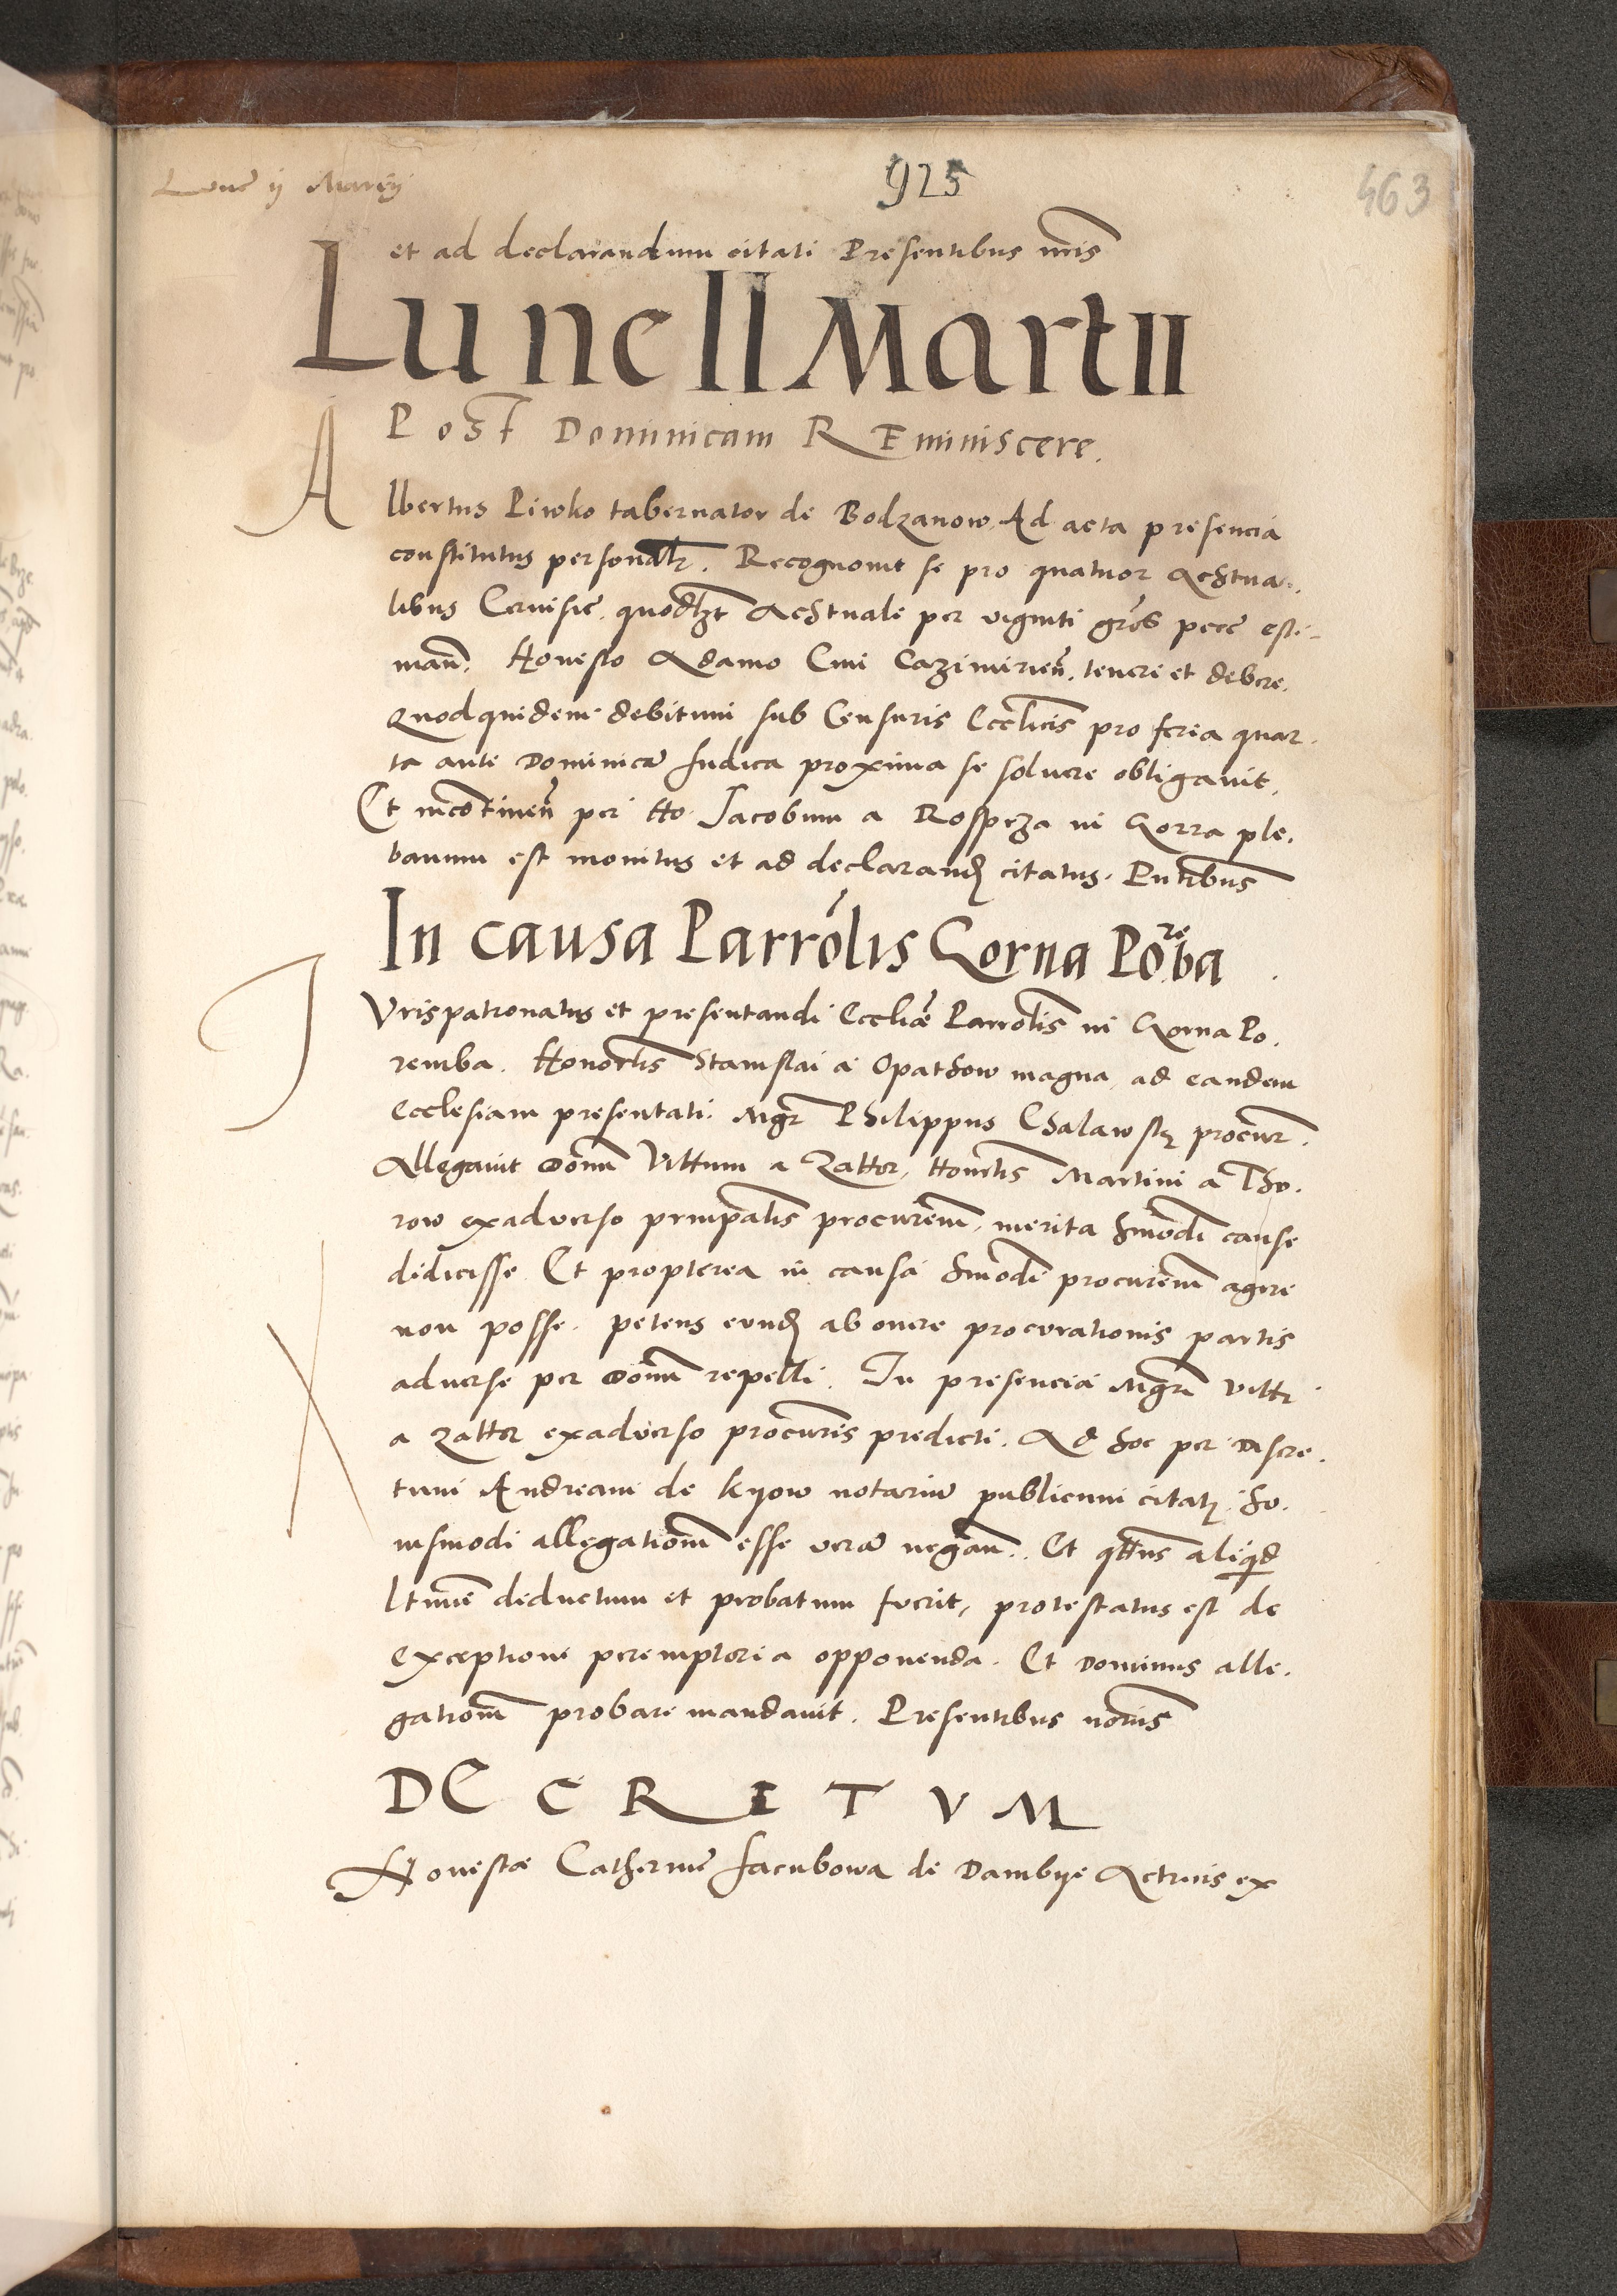 Lune ij Martij
925
463
et ad declarandum citati Presentibus nris
Lune II Martii
Post Dominicam Reminiscere.
Albertus Piwko tabernator de Bodzanow. Ad acta presencia
constitutus personalr. Recognovit se pro quatuor Achtua-
libus Cervisie. quodlzt Achtuale per viginti gros pecc esti-
man. Honesto Adamo Civi Cazimirien. tenere et debere.
Quodquidem debitum sub Censuris Ecclicis pro feria quar-
ta ante Dominica Judica proxima se solvere obligavit.
Et incontinen per Ho. Jacobum a Rosprza in Gorra ple.
banum est monitus et ad declarand citatus. Pntibus
In causa Parrolis Gorna Poreba
Jurispatronatus et presentandi Ecclie Parrolis in Gorna Po.
remba. Honorlis Stanislai a Opathow magna ad eandem
Ecclesiam presentati. Mgr Philippus Chalawsky procur.
Allegavit Donm Vittum a Zator, Honorlis Martini a Tho.
row exadverso principalis procurem, merita hmodi cause
didicisse Et propterea in causa hmodi procurem agere
non posse. petens eund ab onere procurationis partis
adverse per Donm repelli. In presencia Mgri Vitti
a Zator exadverso procuris predicti. Ad hoc per discre.
tum Andream de Kyow notariu publicum citat. hu.
iusmodi allegationem esse vera negan. Et qtenus aliqd
ltime deductum et probatum fuerit, protestatus est de
exceptione peremptoria opponenda. Et Dominus alle.
gationem probare mandavit. Presentibus notariis
DECRETVM
Honestae Catherine Jacubowa de Dambye Actricis ex